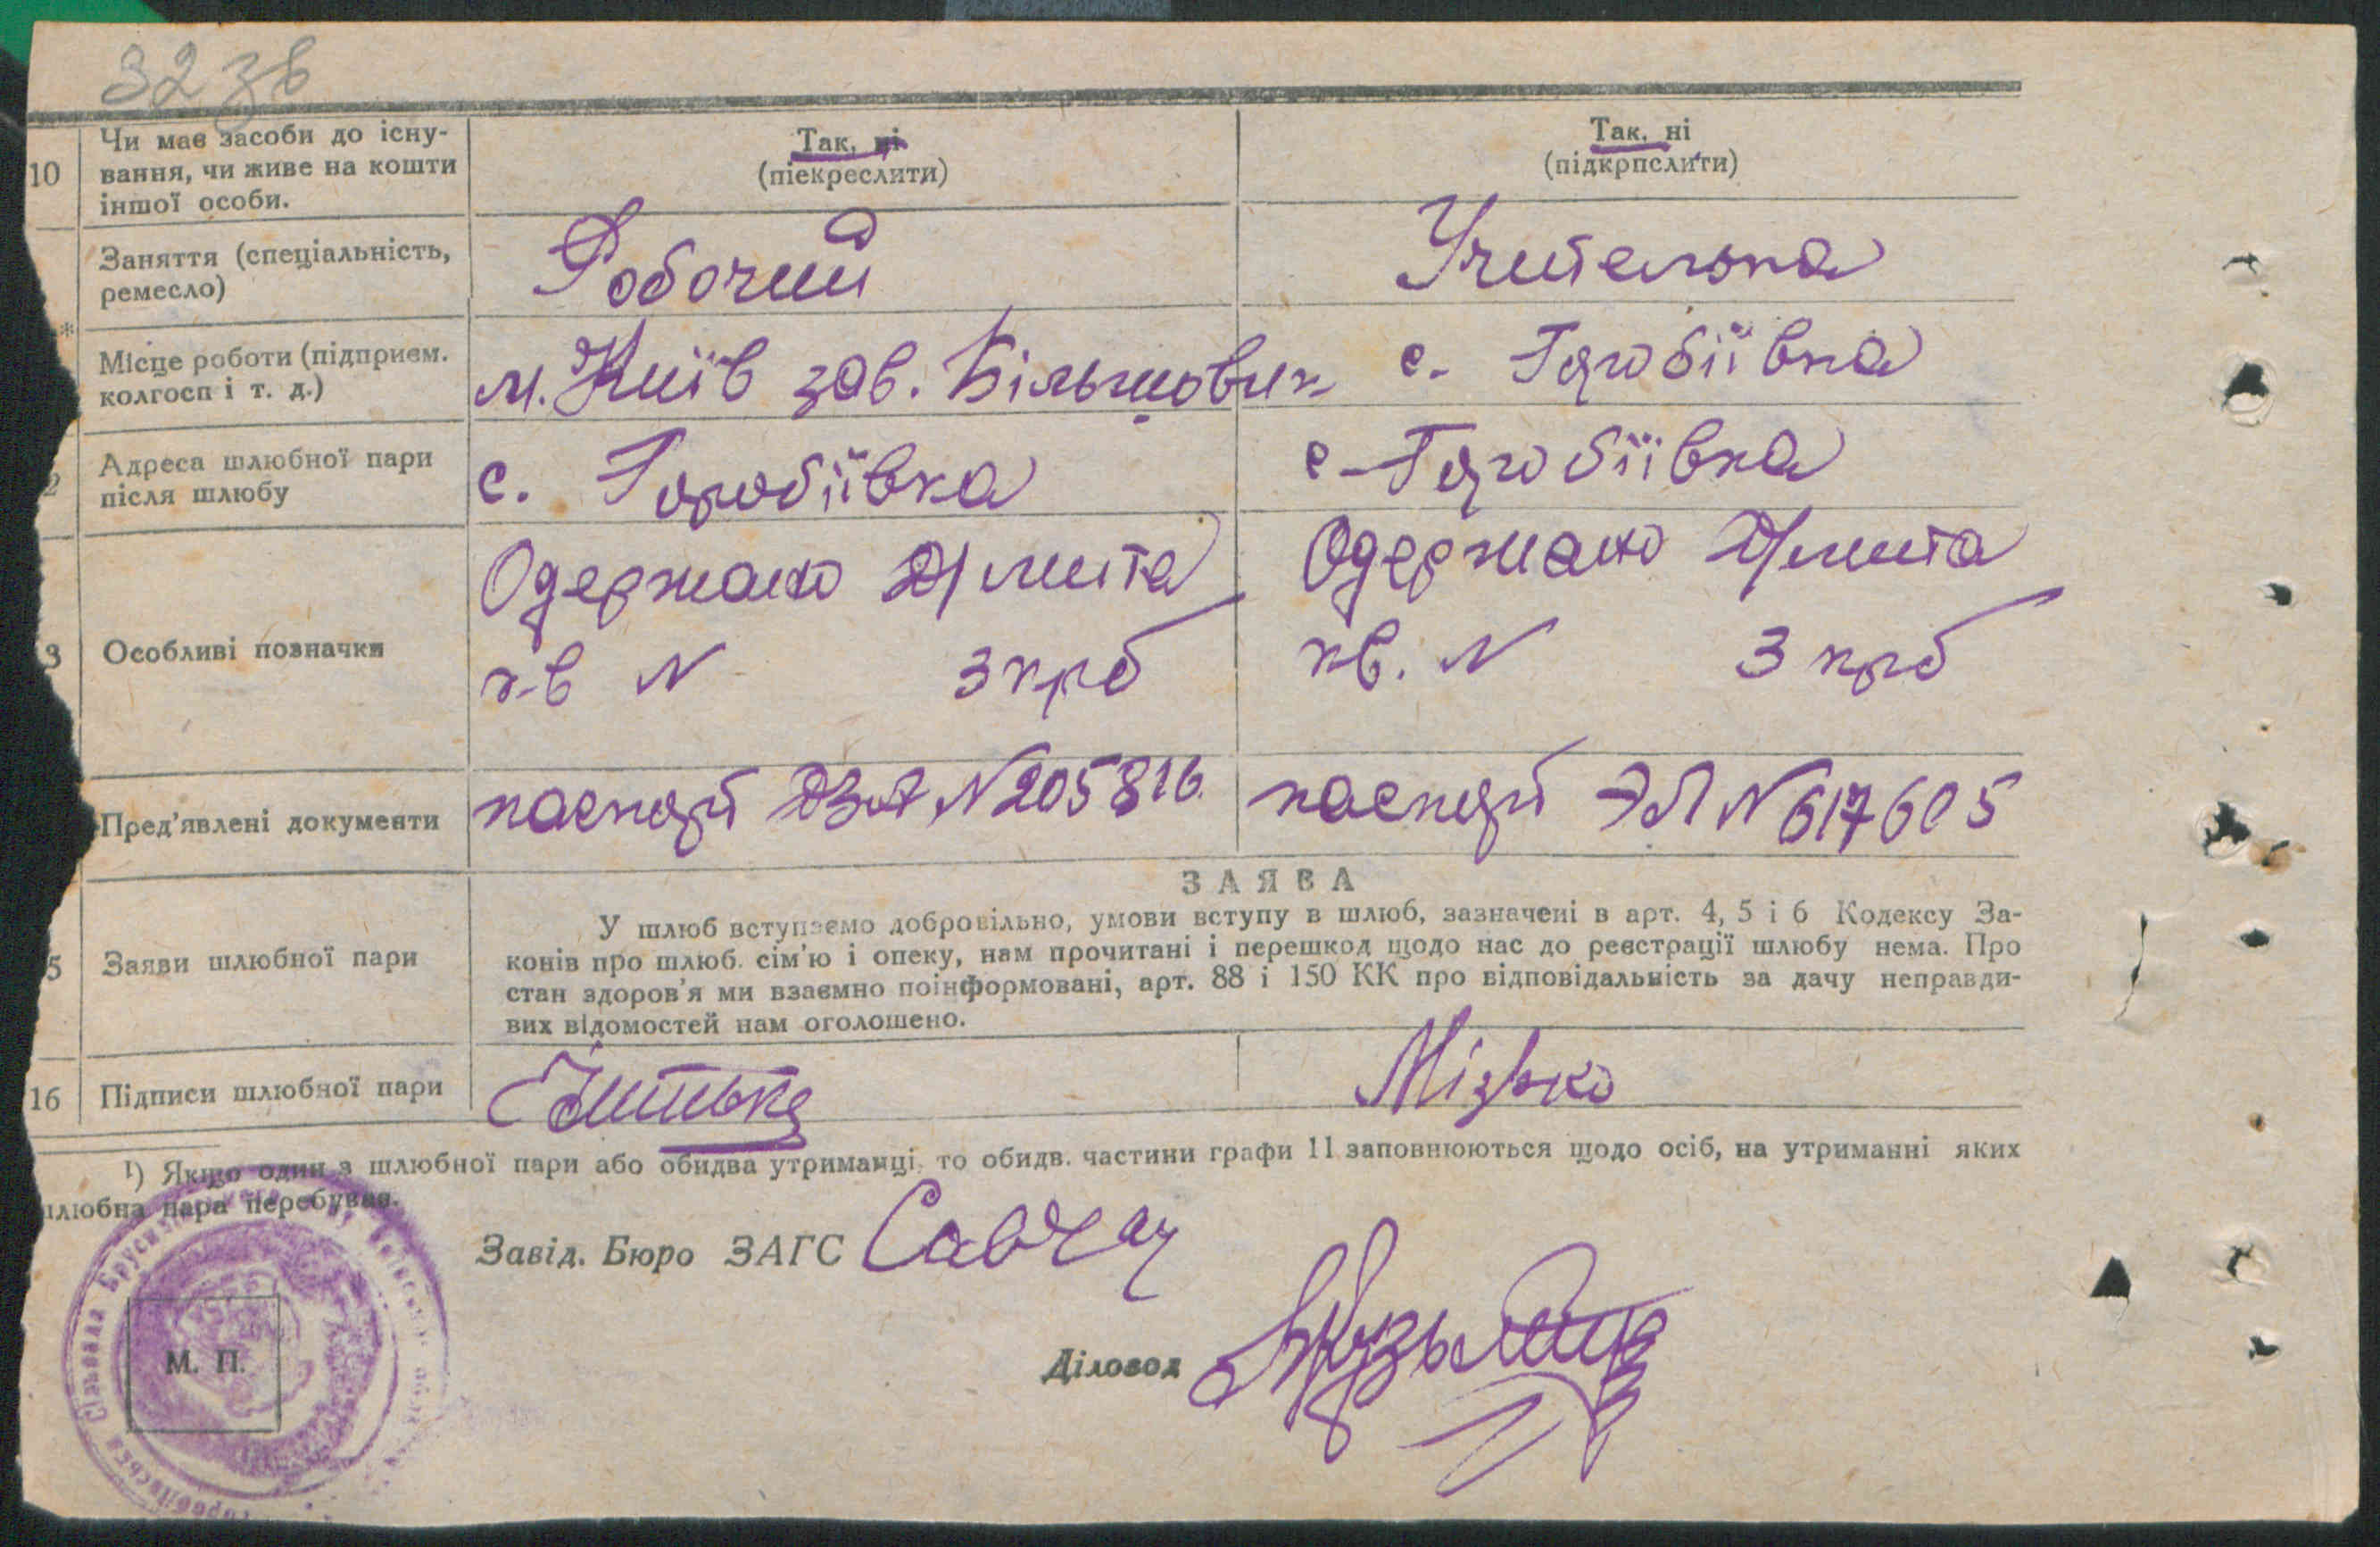 32 зв
10 Чи має засоби до існу-
вання, чи живе на кошти
іншої особи.
Так, ні
(піекреслити)
Так, ні
(підкрпслити)
Заняття (спеціальність,
ремесло)
Робочий
Учителька
Місце роботи (підприєм.
колгосп і т. д.)
м. Київ зав. Більшовик
с. Горобіївка
2 Адреса шлюбної пари
після шлюбу
с. Горобіївка
с. Горобіївка
3 Особливі позначки
Одержано Д/мита
кв N 3 крб
Одержано Д/мита
кв. N 3 крб
Пред'явлені документи
паспорт ДЗА N 205816.
паспорт ЭЛ N 617605
5 Заяви шлюбної пари
ЗАЯВА
У шлюб вступаємо добровільно, умови вступу в шлюб, зазначені в арт. 4, 5 і 6 Кодексу За-
конів про шлюб. сім'ю і опеку, нам прочитані і перешкод щодо нас до реєстрації шлюбу нема. Про
стан здоров'я ми взаємно поінформовані, арт. 88 і 150 КК про відповідальність за дачу неправди-
вих відомостей нам оголошено.
16 Підписи шлюбної пари
Мізько
¹) Якщо один з шлюбної пари або обидва утриманці, то обидв. частини графи 11 заповнюються щодо осіб, на утриманні яких
шлюбна пара перебуває.
Завід. Бюро ЗАГС Савчац
Діловод
М. П.